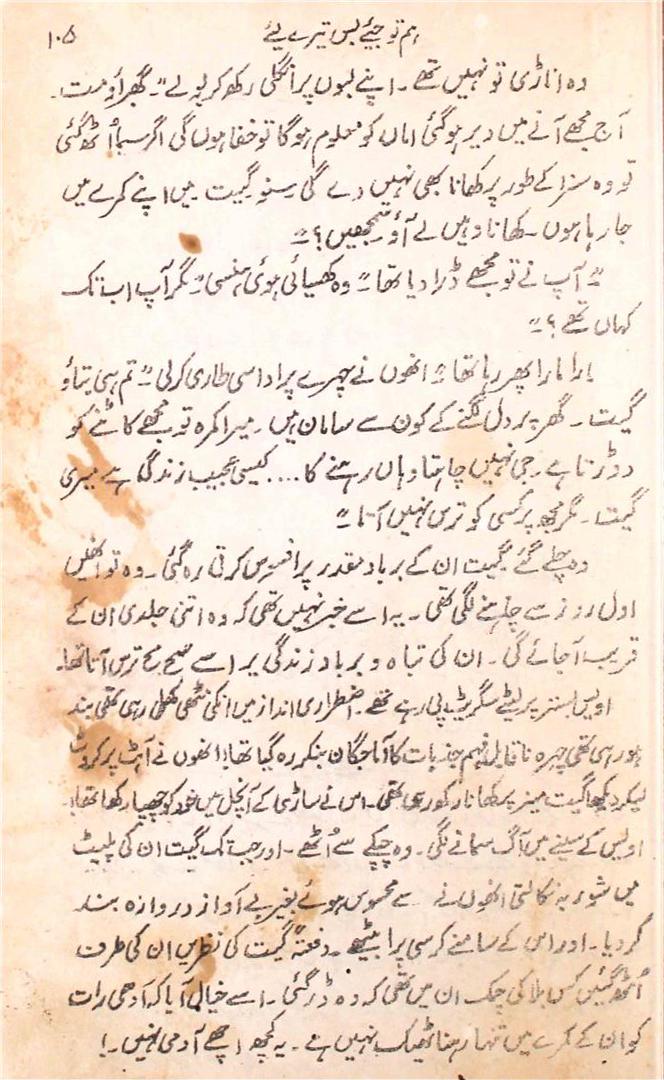 ہم تو جیئے بس تیرے لیئے ۱۰۵
وہ اناڑی تو نہیں تھے۔ اپنے لبوں پر انگلی رکھ کر بولے "۔ گھبراؤ مت۔
آج مجھے آنے میں دیر ہوگئی اماں کو معلوم ہوگا تو خفا ہوں گی اگر سیما اُٹھ گئی
تو وہ سزا کے طور پر کھانا بھی نہیں دے گی سنو گیت۔ میں اپنے کمرے میں
جا رہا ہوں۔ کھانا وہیں لے آؤ سمجھیں؟"
"۔ آپ نے تو مجھے ڈرا دیا تھا" وہ کھسیائی ہوئی ہنسی "۔ مگر آپ اب تک
کہاں تھے؟"
مارا مارا پھر رہا تھا" انھوں نے چہرے پر اداسی طاری کرلی "۔ تم ہی بتاؤ
گیت۔ گھر پر دل لگنے کے کون سے سامان ہیں۔ میرا کمرہ تو مجھے کاٹنے کو
دوڑتا ہے۔ جی نہیں چاہتا وہاں رہنے کا.... کیسی عجیب زندگی ہے میری
گیت۔ مگر مجھ پر کسی کو ترس نہیں آتا"
وہ چلے گئے۔ گیت ان کے برباد مقدر پر افسوس کرتی رہ گئی۔ وہ تو انھیں
اول روز سے چاہنے لگی تھی۔ یہ اسے خبر نہیں تھی کہ وہ اتنی جلدی ان کے
قریب آجائے گی۔ ان کی تباہ و برباد زندگی پر اسے سچ مچ ترس آتا تھا۔
اویس بستر پر لیٹے سگریٹ پی رہے تھے۔ اضطراری انداز میں انکی مٹھی کھل رہی تھی بند
ہو رہی تھی چہرہ ناقابل فہم جذبات کا آماجگان بنکر رہ گیا تھا! انھوں نے آہٹ پر کروٹ
لیکر دیکھا گیت میز پر کھانا رکھ رہی تھی۔ اس نے ساڑی کے آنچل میں خود کو چھپا رکھا تھا!
اویس کے سینے میں آگ سمانے لگی۔ وہ چپکے سے اُٹھے۔ اور جب تک گیت ان کی پلیٹ
میں شوربہ نکالتی انھوں نے سے محسوس ہوئے بغیر بے آواز دروازہ بند
کر دیا۔ اور اس کے سامنے کرسی پر آ بیٹھے۔ دفعتہً گیت کی نظریں ان کی طرف
اُٹھ گئیں کس بلا کی چمک ان میں تھی کہ وہ ڈر گئی۔ اسے خیال آیا کہ آدھی رات
کو ان کے کمرے میں تنہا رہنا ٹھیک نہیں ہے۔ یہ کچھ اچھے آدمی نہیں۔!